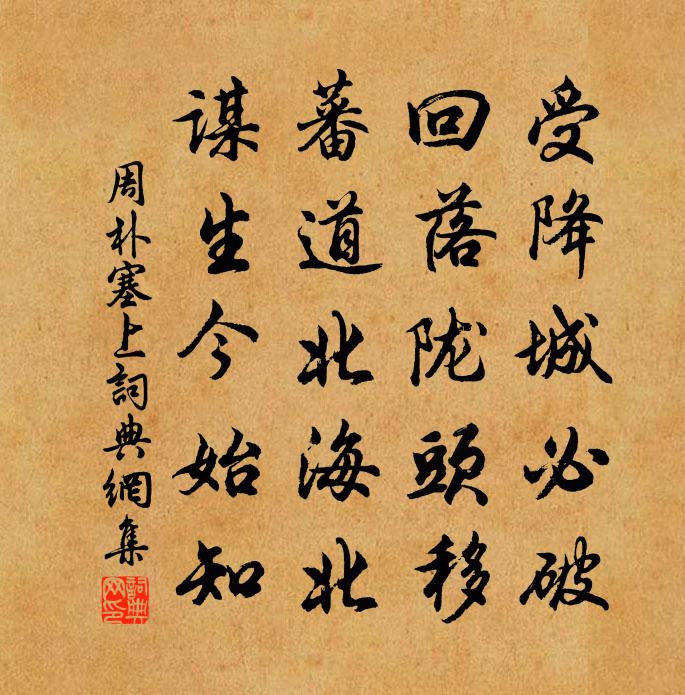 受降城必破
回落陇頭移
蕃道北海北
謀生今始知
周朴塞上詞典網集
詞典网印